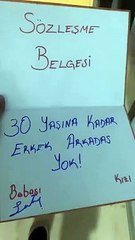 SÖZLEŞME
BELGESİ
30 YAŞINA KADAR
ERKEK ARKADAŞ
YOK!
Babası Kızı